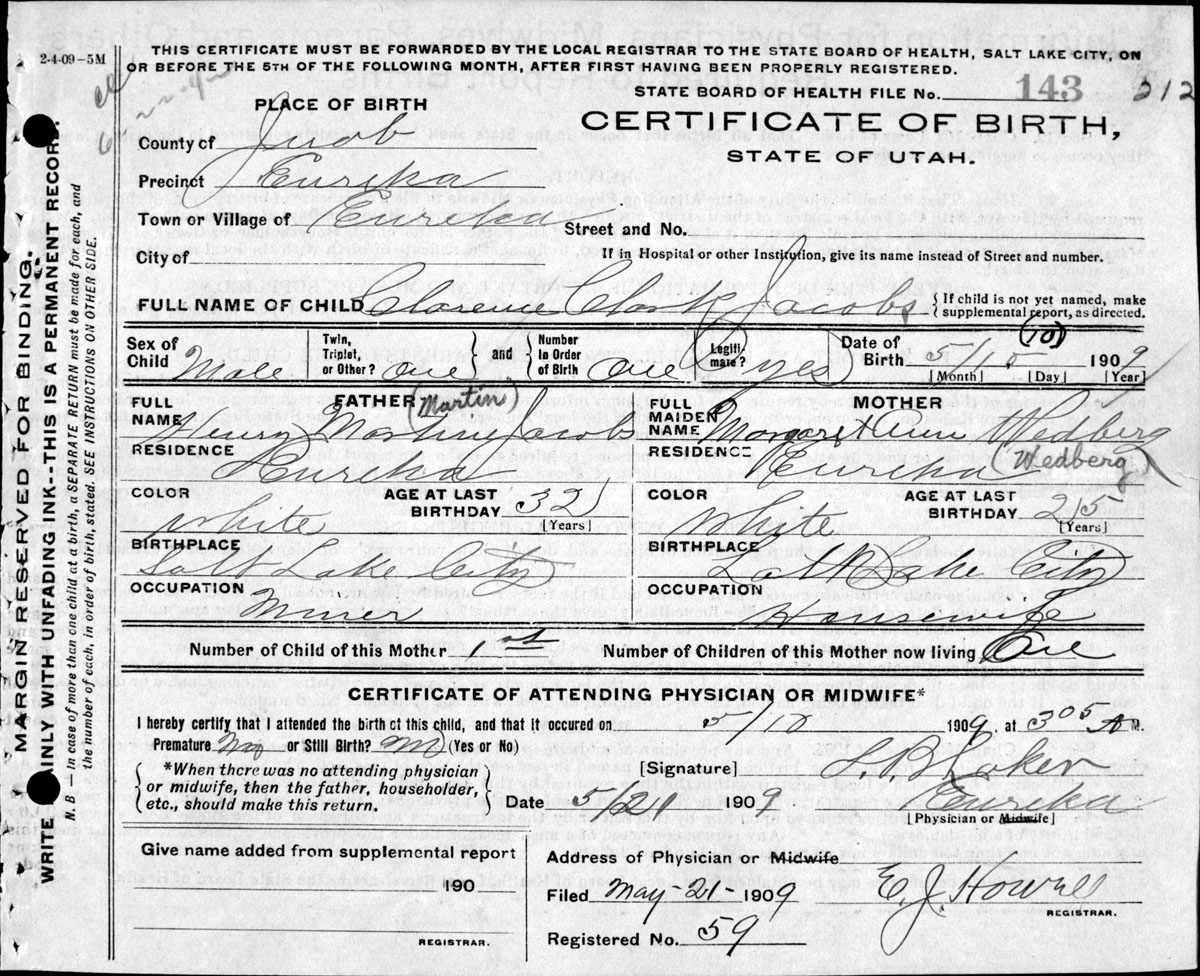 2-4-09-5M
THIS CERTIFICATE MUST BE FORWARDED BY THE LOCAL REGISTRAR TO THE STATE BOARD OF HEALTH, SALT LAKE CITY, ON
OR BEFORE THE 5TH OF THE FOLLOWING MONTH, AFTER FIRST HAVING BEEN PROPERLY REGISTERED.
STATE BOARD OF HEALTH FILE No. 143 212
PLACE OF BIRTH
CERTIFICATE OF BIRTH,
STATE OF UTAH.
County of Juab
Precinct Eureka
Town or Village of Eureka Street and No.
City of If in Hospital or other Institution, give its name instead of Street and number.
FULL NAME OF CHILD Clarence Clark Jacobs {If child is not yet named, make
supplemental report, as directed.
Sex of Child Male Twin, Triplet, or Other? One and Number In Order of Birth One Legiti-mate? yes Date of Birth 5/15 (10) 1909
[Month] [Day] [Year]
FULL NAME FATHER (Martin) FULL MAIDEN NAME MOTHER
Henry Martin Jacobs Margaret Ann Wedberg
RESIDENCE Eureka RESIDENCE Eureka (Wedberg)
COLOR White AGE AT LAST BIRTHDAY 32 [Years] COLOR White AGE AT LAST BIRTHDAY 25 [Years]
BIRTHPLACE Salt Lake City BIRTHPLACE Salt Lake City
OCCUPATION Miner OCCUPATION Housewife
Number of Child of this Mother 1st Number of Children of this Mother now living One
CERTIFICATE OF ATTENDING PHYSICIAN OR MIDWIFE*
I hereby certify that I attended the birth of this child, and that it occured on 5/10 1909, at 3:05 A M.
Premature No or Still Birth? No (Yes or No)
{*When there was no attending physician
or midwife, then the father, householder,
etc., should make this return.}
[Signature]
Date 5/21 1909 Eureka
[Physician or Midwife]
Give name added from supplemental report
190
REGISTRAR.
Address of Physician or Midwife
Filed May-21- 1909 E. J. Howell
REGISTRAR.
Registered No. 59
MARGIN RESERVED FOR BINDING.
WRITE PLAINLY WITH UNFADING INK--THIS IS A PERMANENT RECORD.
N. B.—In case of more than one child at a birth, a SEPARATE RETURN must be made for each, and
the number of each, in order of birth, stated. SEE INSTRUCTIONS ON OTHER SIDE.